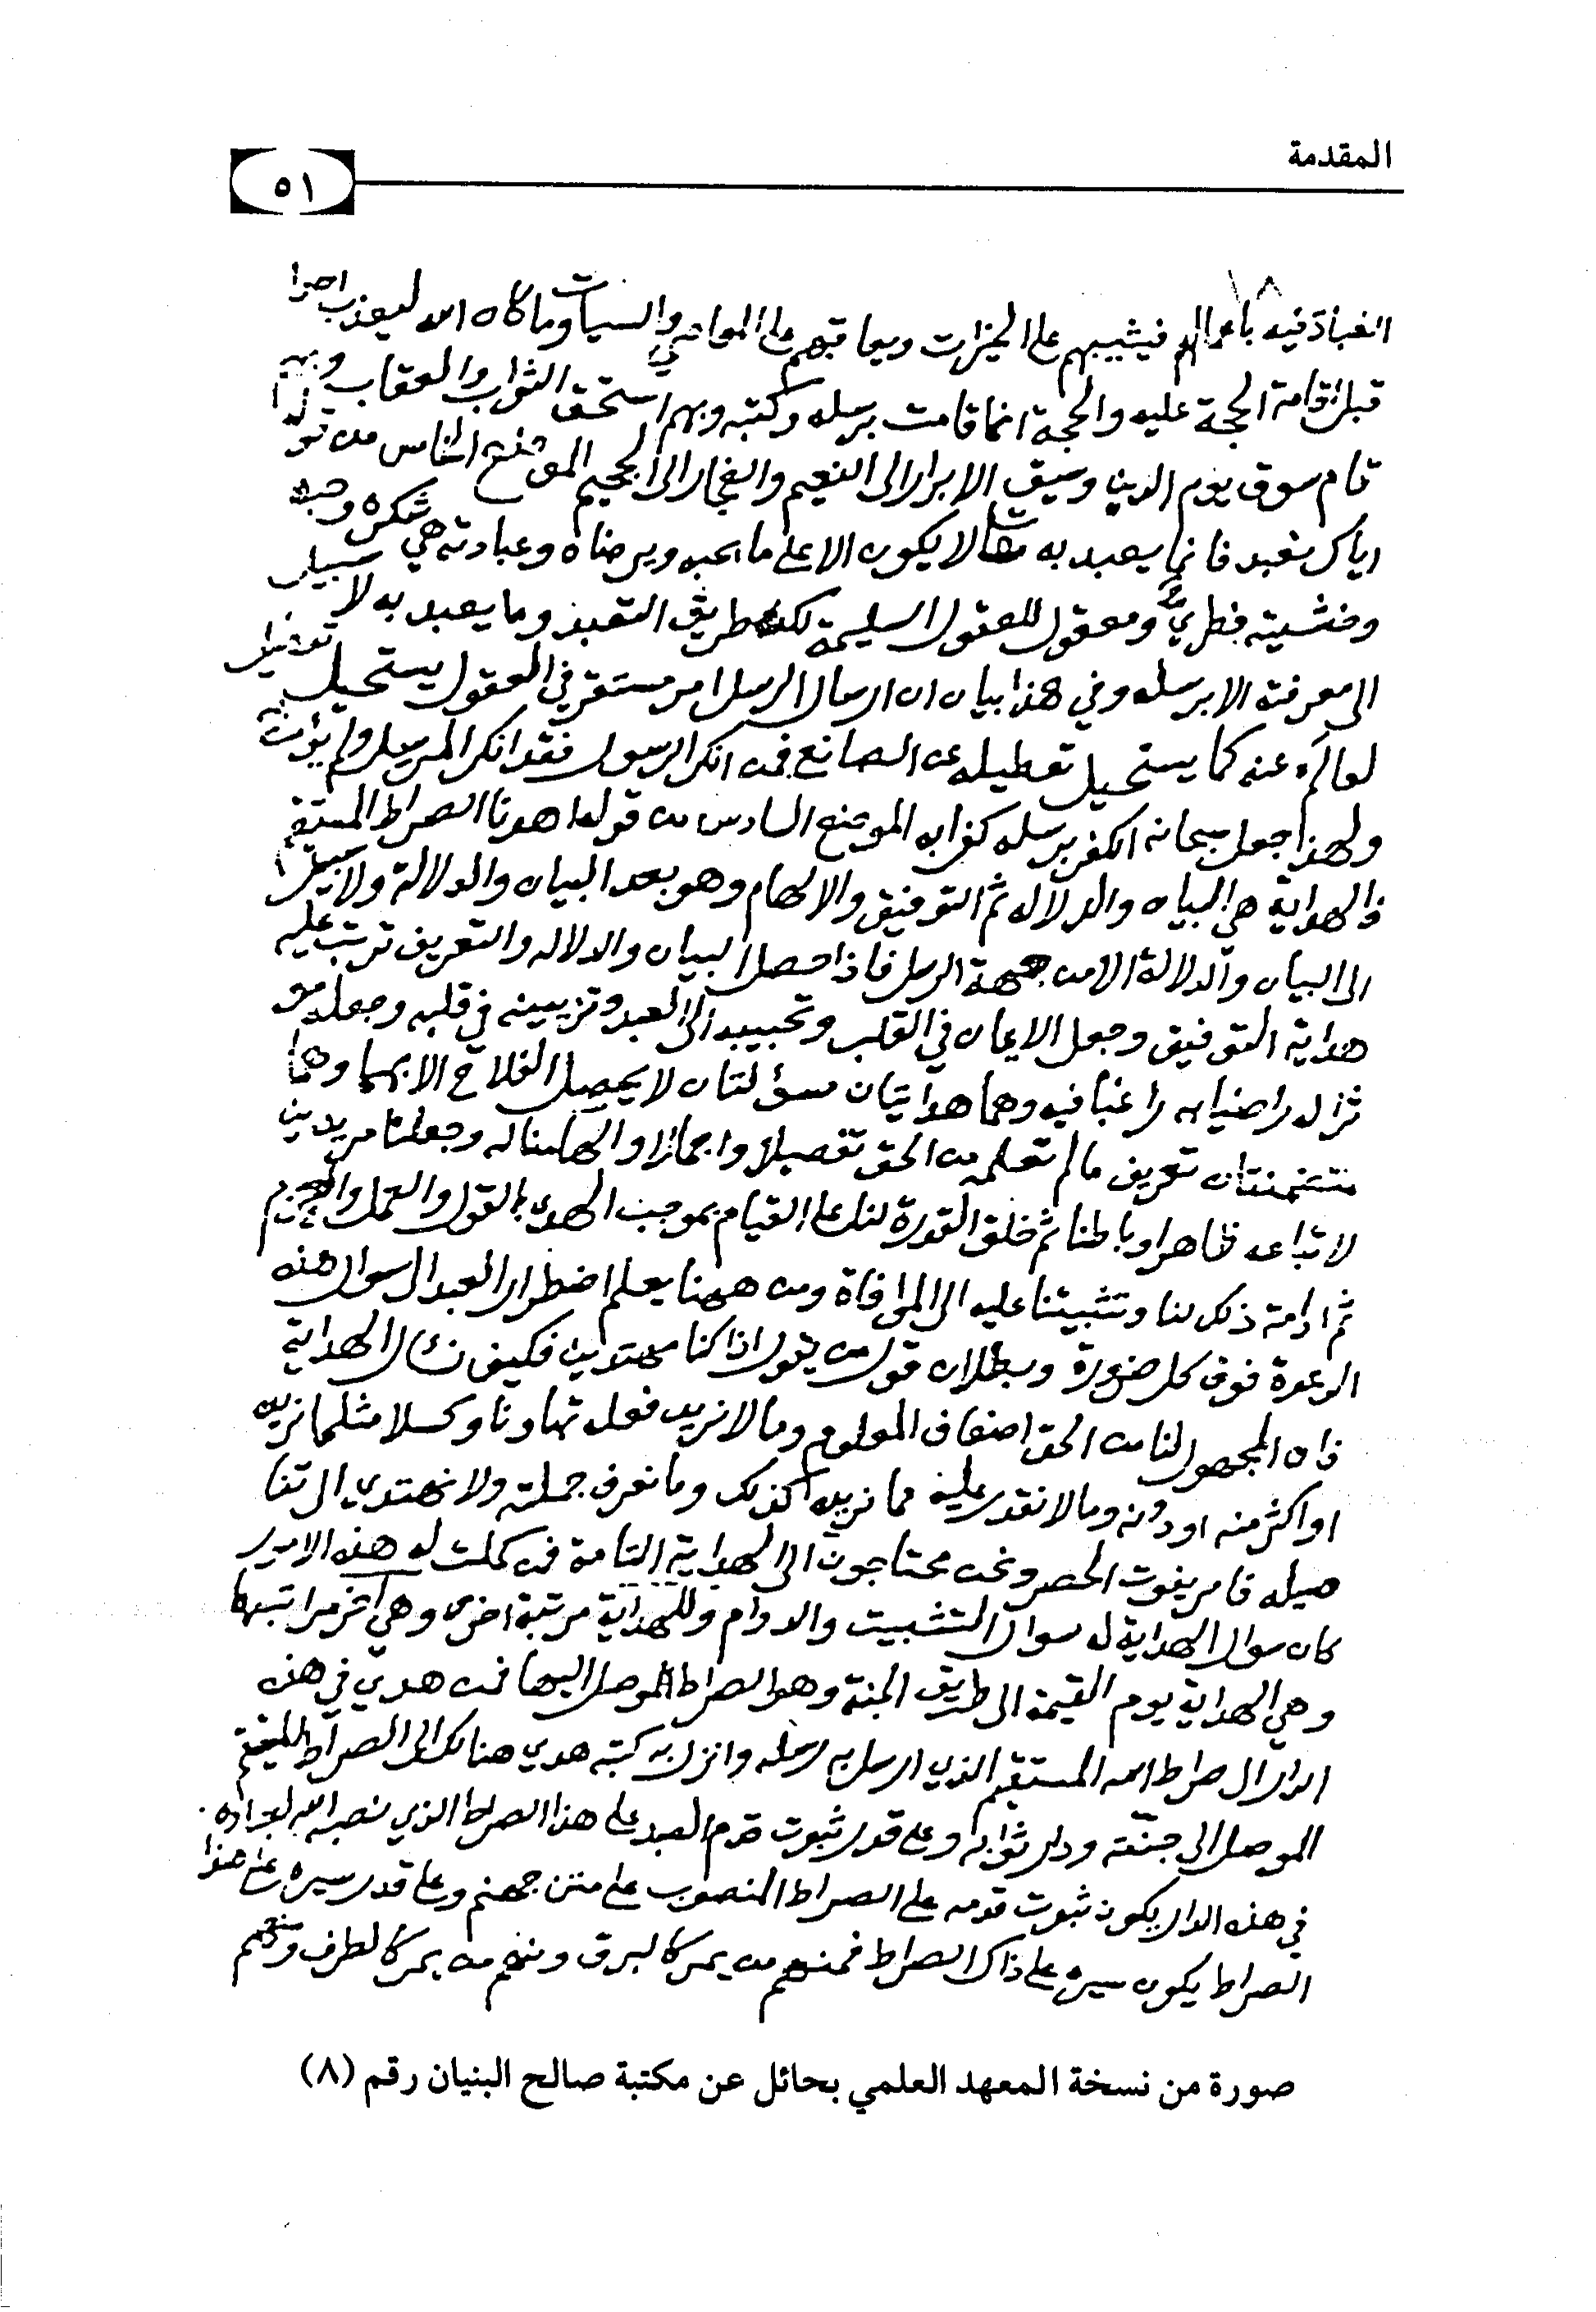 المقدمة
٥١
العباد فيه باعمالهم فيثيبهم على الخيرات ويعاقبهم على المعاصي والسيات وما كان الله ليعذب احدا
قبل اقامة الحجة عليه والحجة انما قامت برسله وكتبه وبهم استحق الثواب والعقاب وبهم
قام سوق يوم الدين وسيق الابرار الى النعيم والفجار الى الجحيم الموضع الخامس من قوله
اياك نعبد فانما يعبد به تعالى لا يكون الا على ما يحبه ويرضاه وعبادته هي شكره وحبه
وخشيته فطري ومعقول للعقول السليمة لكن طريق التعبد وما يعبد به لا سبيل
الى معرفته الا برسله وفي هذا بيان ان ارسال الرسل امر مستقر في العقول يستحيل تعطيل
العالم عنه كما يستحيل تعطيله عن الصانع فمن انكر الرسول فقد انكر المرسل ولم يؤمن به
ولهذا جعل سبحانه الكفر برسله كفرا به الموضع السادس من قوله اهدنا الصراط المستقيم
فالهداية هي البيان والدلاله ثم التوفيق والالهام وهو بعد البيان والدلالة ولا سبيل
الى البيان والدلالة الا من جهة الرسل فاذا حصل البيان والدلاله والتعريف ترتب عليه
هداية التوفيق وجعل الايمان في القلب وتحبيبه الى العبد وتزيينه في قلبه وجعله مو
ثرا له راضيا به راغبا فيه وهما هدايتان مسؤلتان لا يحصل الفلاح الا بهما وهما
متضمنتان تعريف ما لم نعلمه من الحق تفصيلا واجمالا والهامنا له وجعلنا مريدين
لاتباعه ظاهرا وباطنا ثم خلق القدرة لنا على القيام بموجب الهدى بالقول والعمل والعزم
ثم ادامة ذلك لنا وتثبيتنا عليه الى الموافاة ومن ههنا يعلم اضطرار العبد الى سوال هذه
الدعوة فوق كل ضرورة وبطلان قول من يقول اذا كنا مهتدين فكيف نسال الهداية
فان المجهول لنا من الحق اضعاف المعلوم وما لا نريد فعله تهاونا وكسلا مثل ما نريده
او اكثر منه او دونه وما لا نقدر عليه مما نريده كذلك وما نعرف جملته ولا نهتدي الى تفا
صيله فامر يفوت الحصر ونحن محتاجون الى الهداية التامة فمن كملت له هذه الامور
كان سوال الهداية له سوال التثبيت والدوام وللهداية مرتبة اخرى وهي اخر مراتبها
وهي الهداية يوم القيمة الى طريق الجنة وهو الصراط الموصل اليها فمن هدي في هذه
الدار الى صراط الله المستقيم الذي ارسل به رسله وانزل به كتبه هدي هنالك الى الصراط المستقيم
الموصل الى جنته ودار ثوابه وعلى قدر ثبوت قدم العبد على هذا الصراط الذي نصبه الله لعباده
في هذه الدار يكون ثبوت قدمه على الصراط المنصوب على متن جهنم وعلى قدر سيره على هذا
الصراط يكون سيره على ذاك الصراط فمنهم من يمر كالبرق ومنهم من يمر كالطرف ومنهم
صورة من نسخة المعهد العلمي بحائل عن مكتبة صالح البنيان رقم (٨)